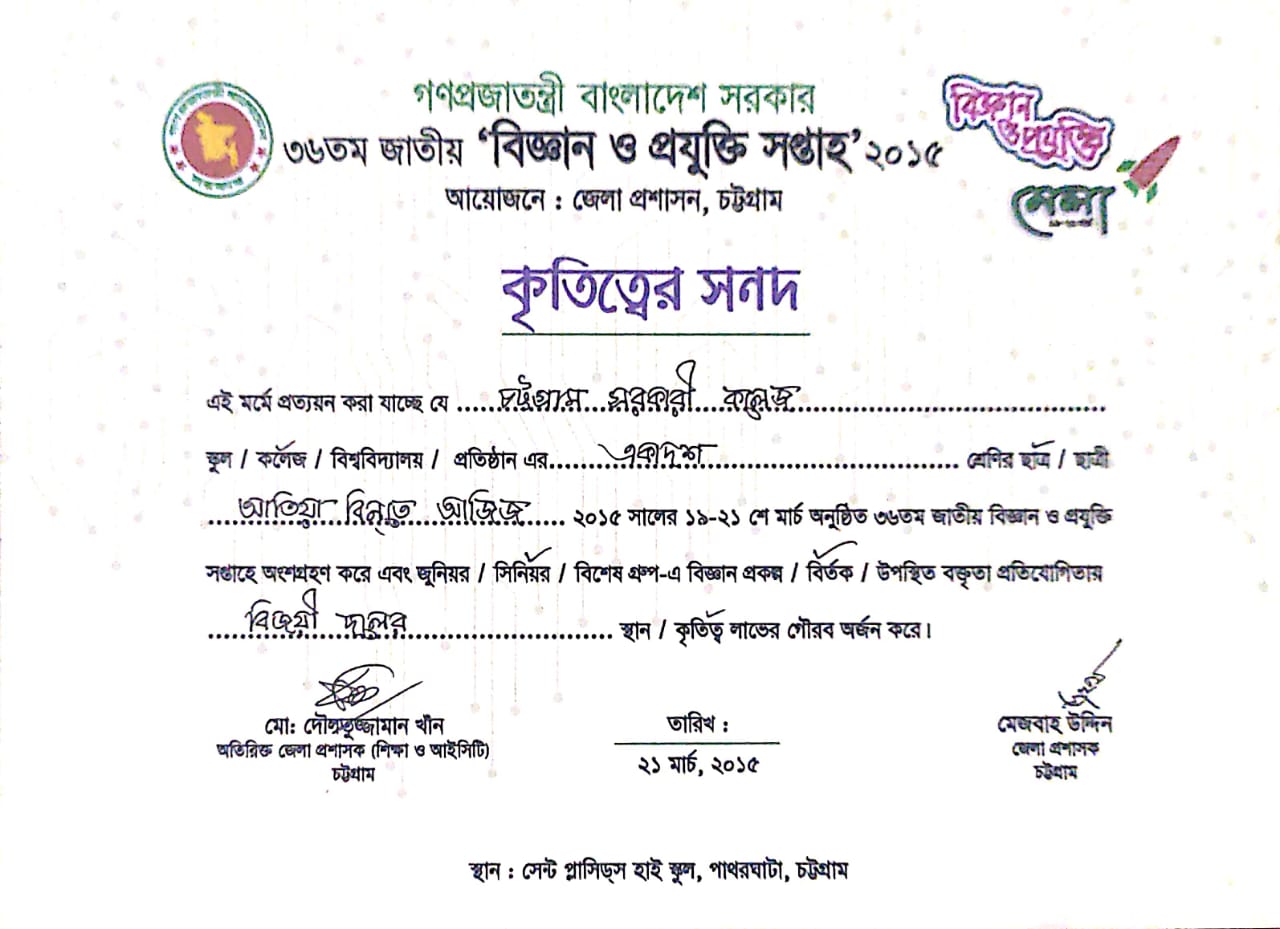 গণপ্রজাতন্ত্রী বাংলাদেশ সরকার
৩৬তম জাতীয় ‘বিজ্ঞান ও প্রযুক্তি সপ্তাহ’ ২০১৫
আয়োজনে : জেলা প্রশাসন, চট্টগ্রাম
বিজ্ঞান
ও প্রযুক্তি
মেলা
কৃতিত্বের সনদ
এই মর্মে প্রত্যয়ন করা যাচ্ছে যে ..... চট্টগ্রাম সরকারী কলেজ .....
স্কুল / কলেজ / বিশ্ববিদ্যালয় / প্রতিষ্ঠান এর..... একাদশ ..... শ্রেণির ছাত্র / ছাত্রী
..... আতিয়া বিনতে আজিজ ..... ২০১৫ সালের ১৯-২১ শে মার্চ অনুষ্ঠিত ৩৬তম জাতীয় বিজ্ঞান ও প্রযুক্তি
সপ্তাহে অংশগ্রহণ করে এবং জুনিয়র / সিনিয়র / বিশেষ গ্রুপ-এ বিজ্ঞান প্রকল্প / বির্তক / উপস্থিত বক্তৃতা প্রতিযোগিতায়
..... বিজয়ী দলের ..... স্থান / কৃতিত্ব লাভের গৌরব অর্জন করে।
মো: দৌলতুজ্জামান খাঁন
অতিরিক্ত জেলা প্রশাসক (শিক্ষা ও আইসিটি)
চট্টগ্রাম
তারিখ :
২১ মার্চ, ২০১৫
মেজবাহ উদ্দিন
জেলা প্রশাসক
চট্টগ্রাম
স্থান : সেন্ট প্লাসিড্‌স হাই স্কুল, পাথরঘাটা, চট্টগ্রাম